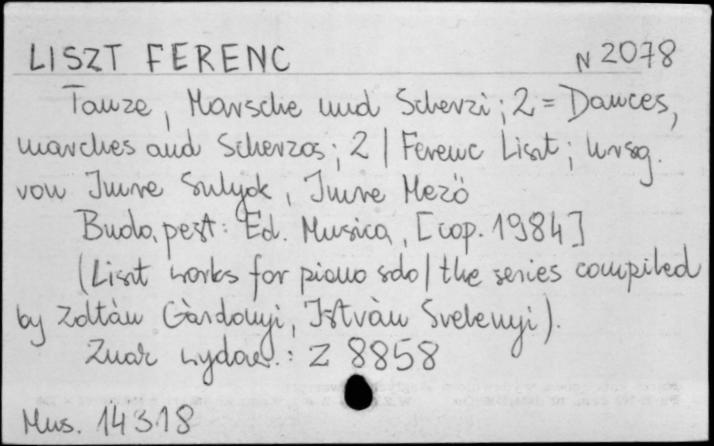 LISZT FERENC N 2078
Tanze, Marsche und Scherzi; 2 = Dances,
marches and Scherzos; 2 / Ferenc Liszt; hrsg.
von Imre Sulyok, Imre Mezö
Budapest: Ed. Musica, [cop. 1984]
(Liszt works for piano solo / the series compiled
by Zoltàn Gàrdonyi, Istvàn Szelenyi).
Znak wydaw.: Z 8858
Mus. 14318